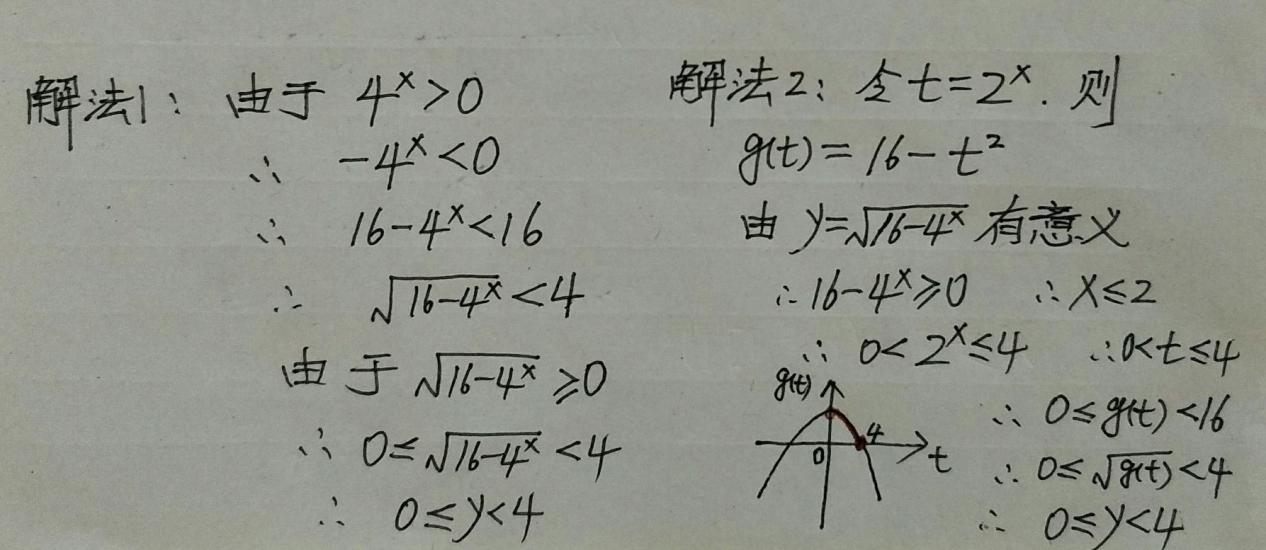 解法1: 由于 4ˣ>0
∴ -4ˣ<0
∴ 16-4ˣ<16
∴ √(16-4ˣ)<4
由于 √(16-4ˣ)≥0
∴ 0≤√(16-4ˣ)<4
∴ 0≤y<4
解法2: 令t=2ˣ. 则
g(t)=16-t²
由 y=√(16-4ˣ) 有意义
∴16-4ˣ≥0 ∴x≤2
∴ 0<2ˣ≤4 ∴0<t≤4
g(t)
4
0
t
∴ 0≤g(t)<16
∴ 0≤√g(t)<4
∴ 0≤y<4